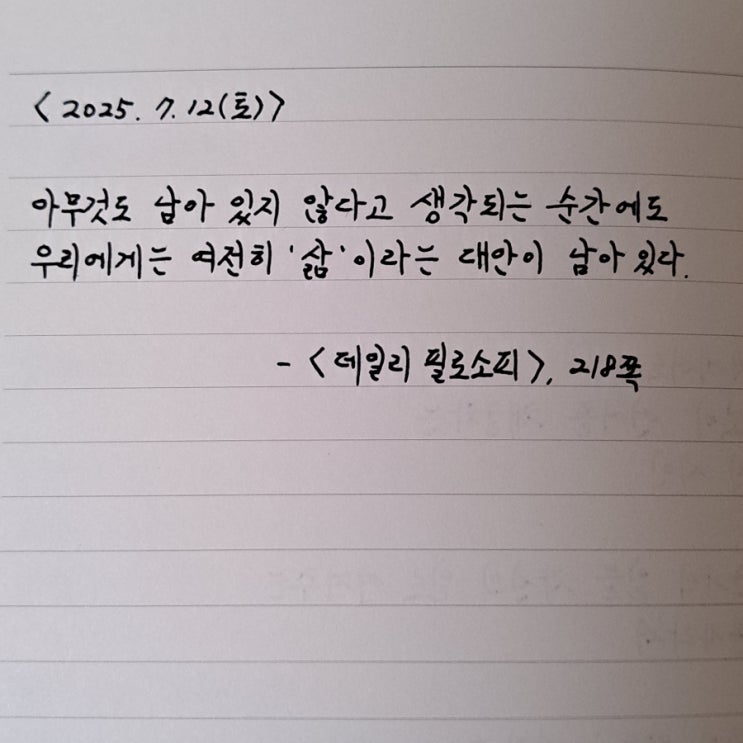 <2025. 7. 12(토)>
아무것도 남아 있지 않다고 생각되는 순간에도
우리에게는 여전히 '삶'이라는 대안이 남아 있다.
- <데일리 필로소피>, 218쪽